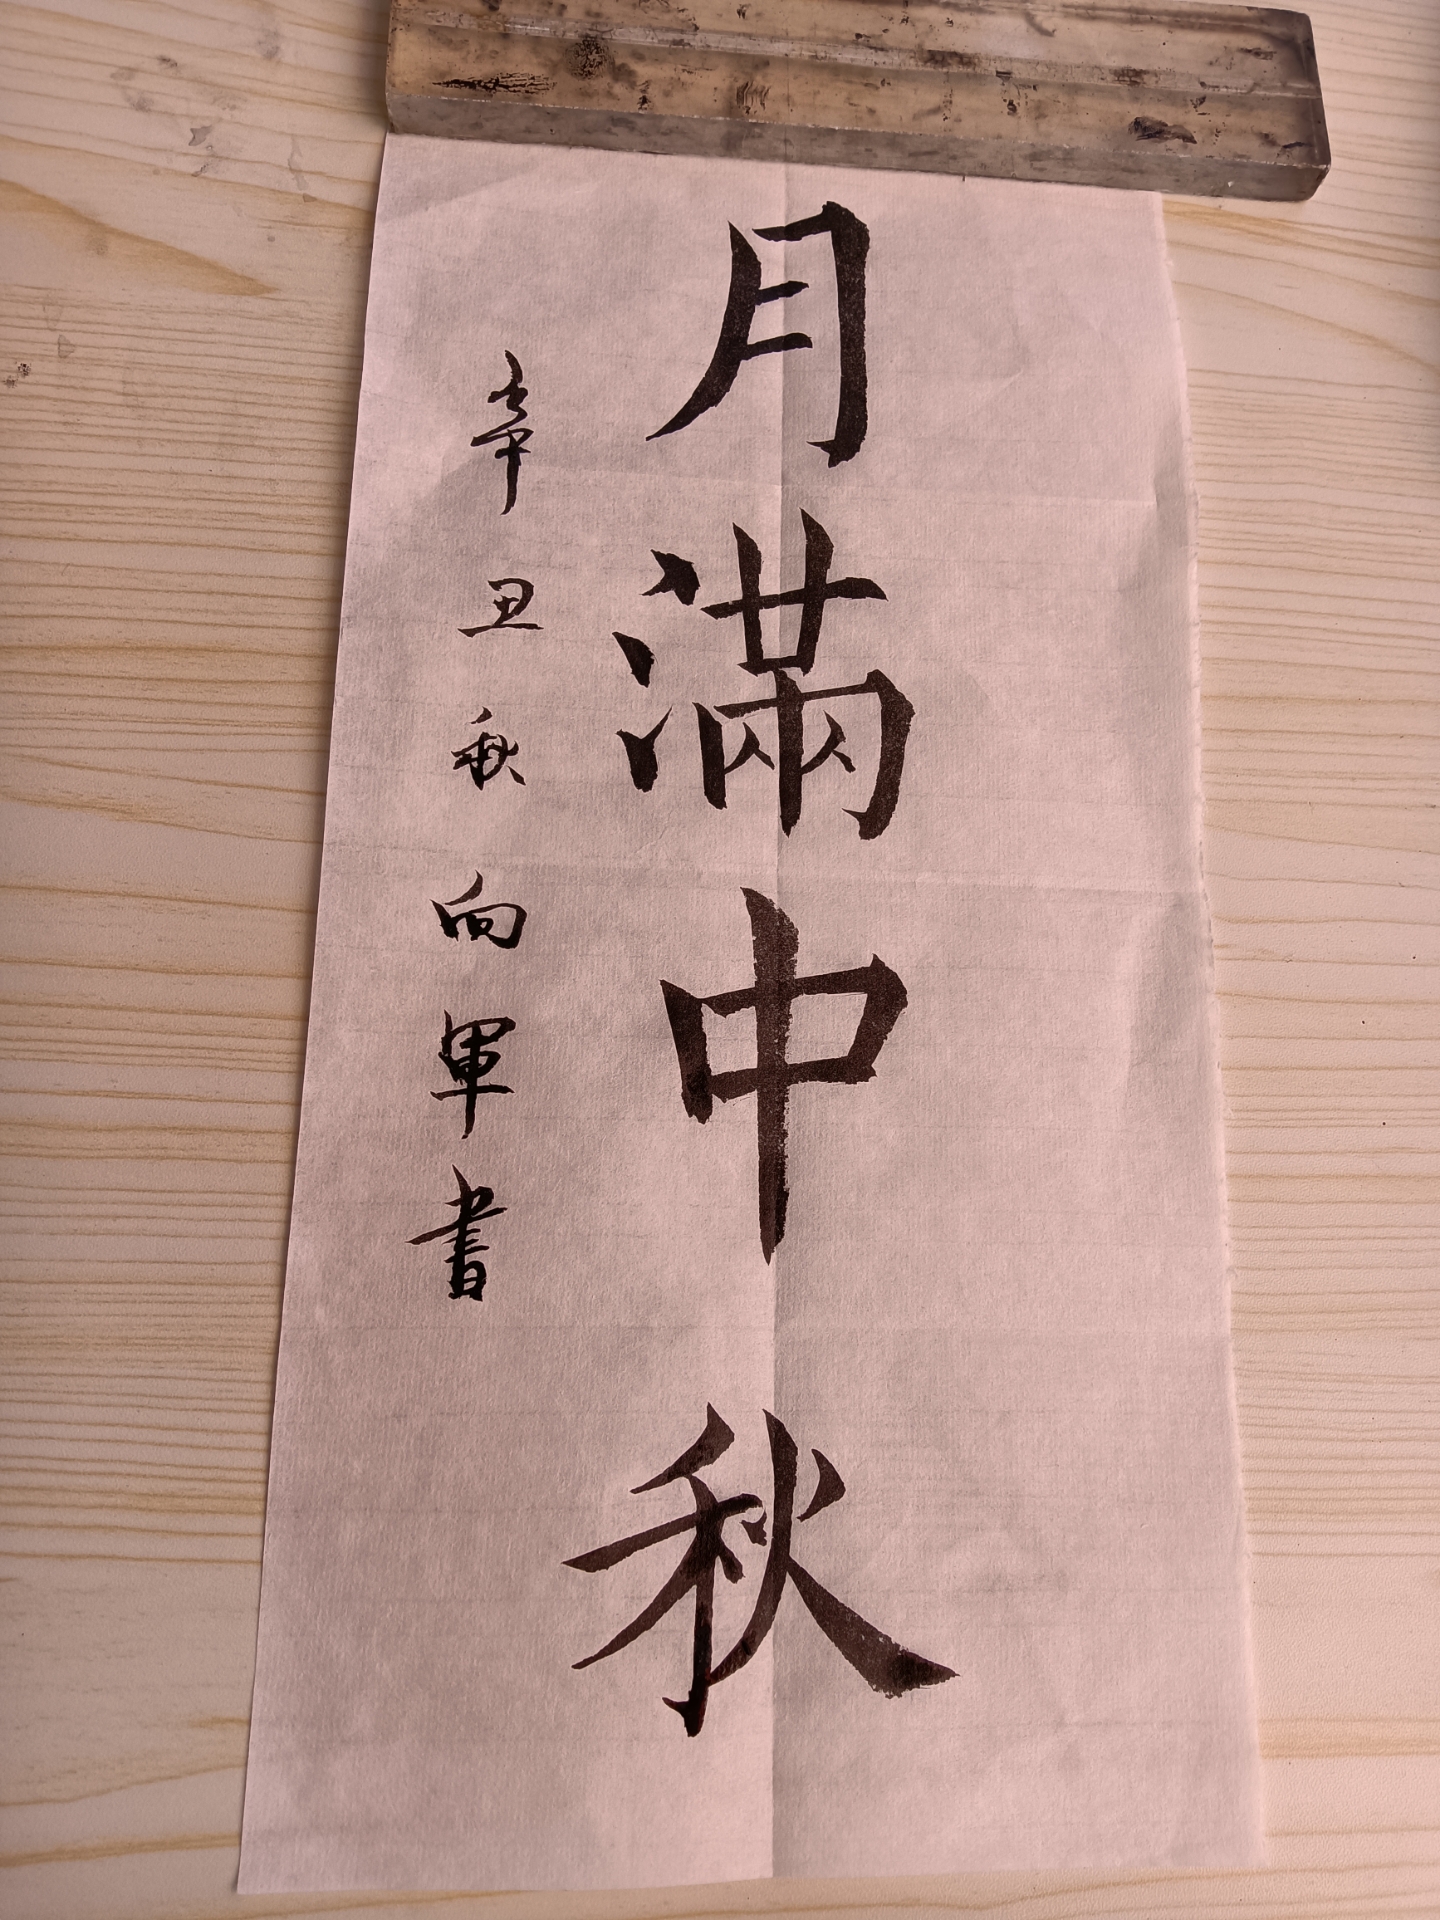 月滿中秋
辛丑秋向軍書